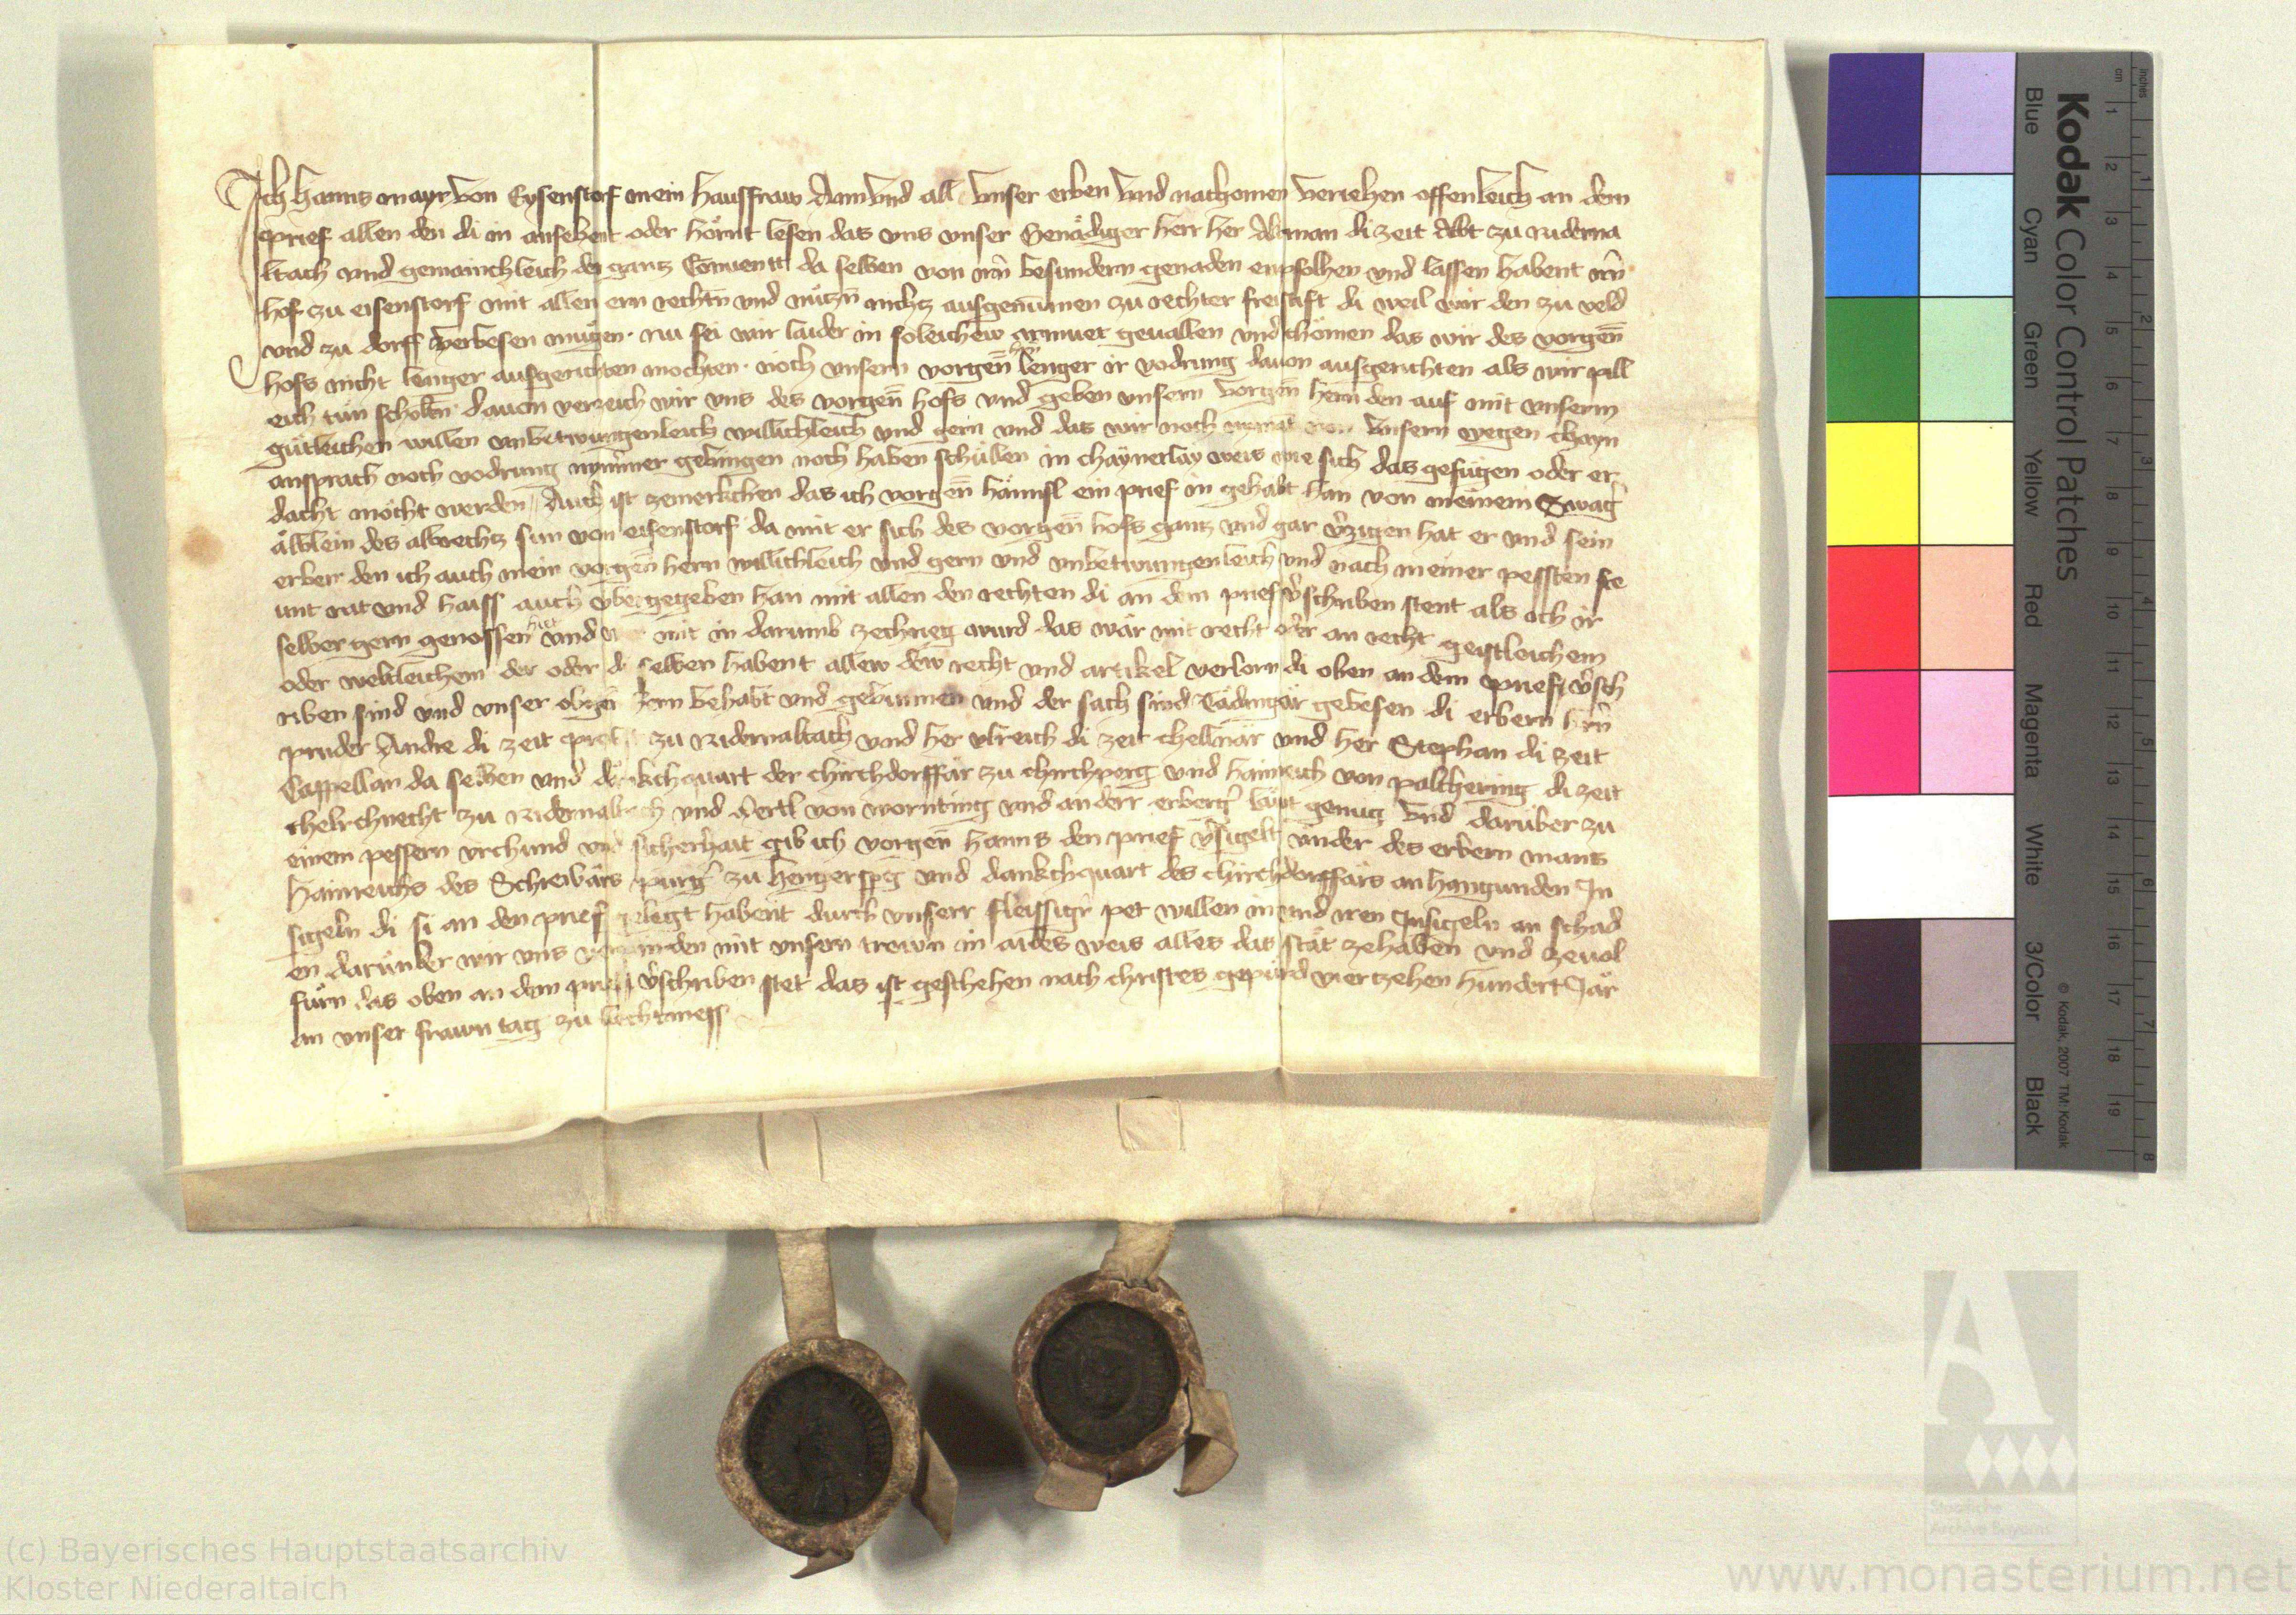 Ich Hanns mayr von Eysenstorf mein Hausfraw Ann vnd all vnser erben vnd nachomen veriehen offenleich an dem
prief allen den di in ansehent oder hörnt lesen das vns vnser Genädiger herr her Altman di zeit Abt zu Niderna
ltach vnd gemainchleich der gantz Conuentt da selben von irn besundern genaden enpfolhen vnd lassen habent irn
hof zu eisenstorf mit allen ern rechtn̄ vnd nützn̄ nichtz ausgenumen zu rechter freistift di weil wir den zu veld
vnd zu dorff verbesen mügen. nu sei wir laider in soleichew armuet geuallen vnd chömen das wir des vorgen̄
hofs nicht lenger ausgerichten mochten. noch vnsern vorgen̄ hern lenger ir vodrung dauon ausgerichten als wir pill
eich tün scholtn̄ dauon verzeich wir vns des vorgen̄ hofs vnd geben vnsern vorgen̄ hern den auf mit vnserm
gütleichen willen vnbetwungenleich willichleich vnd gern vnd das wir noch von vnsern wegen chayn
ansprach noch vodrung nymmer gebingen noch haben schüllen in chaynerlay weis wie sich das gefügen oder er
dacht möcht werden Auch ist zemerkchen das ich vorgen̄ hännsl ein prief in gehabt han von meinem Swag̓
älblein des albrechtz sun von eisenstorf da mit er sich des vorgen̄ hofs gantz vnd gar v̓zigen hat er vnd sein
erben den ich auch mein vorgen̄ hern willichleich vnd gern vnd vnbetwungenleich vnd nach meiner pessten fre
unt rat vnd haiss auch vbergegeben han mit allen den rechten di an dem prief v̓schriben stent als ich ir
selber gern genossen hiet vnd wer mit in darumb zechrieg wurd das wär mit recht oder an recht geistleichem
oder weltleichem der oder di selben habent allew dew recht vnd artikel verlorn di oben an dem prief v̓sch
riben sind vnd vnser obgen̄ hern behabt vnd gebunnen vnd der sach sind Tädingär gebesen di erbern hrn̄
pruder Andre di zeit zu Nidernaltach vnd her vlreich di zeit chellnär vnd her Stephan di zeit
Cappellan da selben vnd dankchquart der chirchdorffär zu chirchperg vnd hainreich von palthering di zeit
chelrchnecht zu Nidernaltach vnd Hertl von wornting vnd anderr erberg̓ läwt genug vnd darüber zu
einem pessern vrchund vnd sicherhait gib ich vorgen̄ Hanns den prief v̓sigelt vnder des erbern mans
Hainreichs des Schreibärs purg̓ zu Hengerspg̓ vnd dankchquart des chirchdorffärs anhangunden In
sigeln di si an den prief gelegt habent durch vnserr fleissig̓r pet willen in vnd iren Insigeln an schad
en darunder wir vns verpinden mit vnsern trewn in aides weis alles das stät zehaben vnd zeuol
fürn das oben an dem prief v̓schriben stet das ist geschehen nach christes gepürd viertzehen hundert Jär
an vnser frawn tag zu liechtmess
Kodak Color Control Patches
Blue Cyan Green Yellow Red Magenta White 3/Color Black
© Kodak, 2007 TM: Kodak
cm 1 2 3 4 5 6 7 8 9 10 11 12 13 14 15 16 17 18 19
inches 1 2 3 4 5 6 7 8
Staatliche
Archive Bayerns
(c) Bayerisches Hauptstaatsarchiv
Kloster Niederaltaich
www.monasterium.net